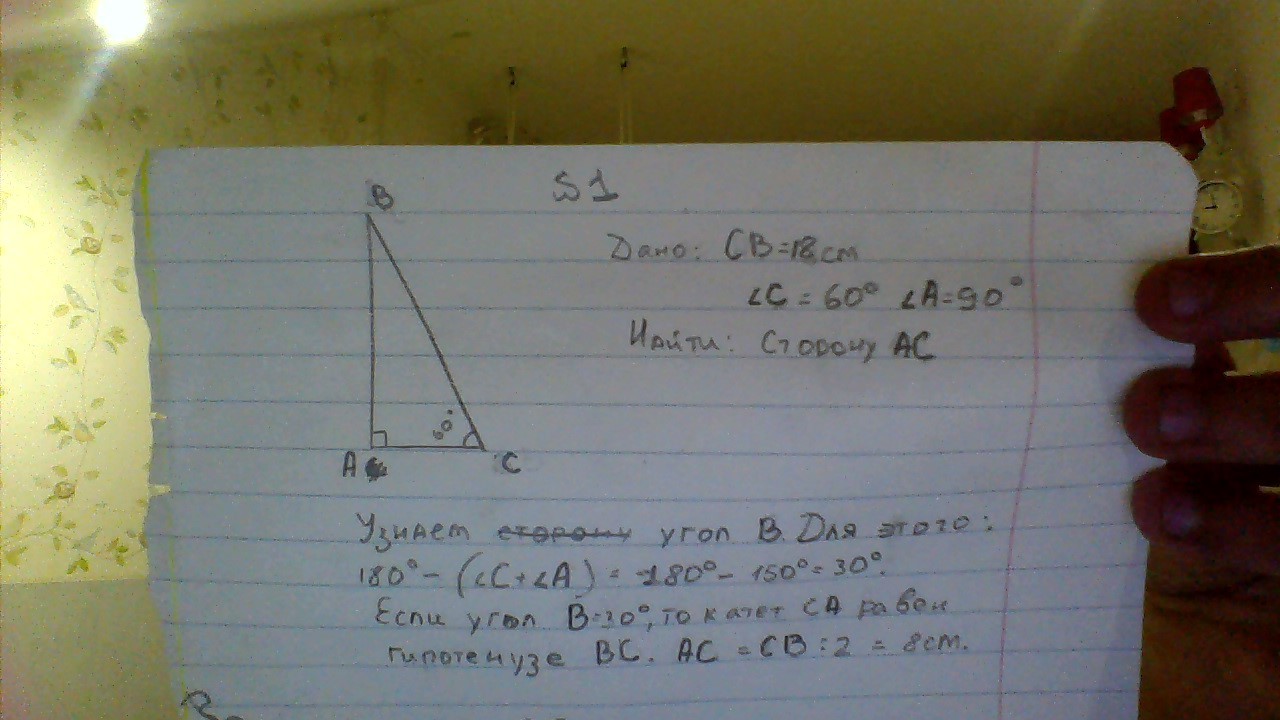 B
S1
Дано: CB=18см
∠C = 60° ∠A=90°
Найти: Сторону AC
60°
A C
Узнаем сторону угол B. Для этого:
180° - (∠C+∠A) = 180° - 150° = 30°.
Если угол B=30°, то катет CA равен
гипотенузе BC. AC = CB : 2 = 8см.